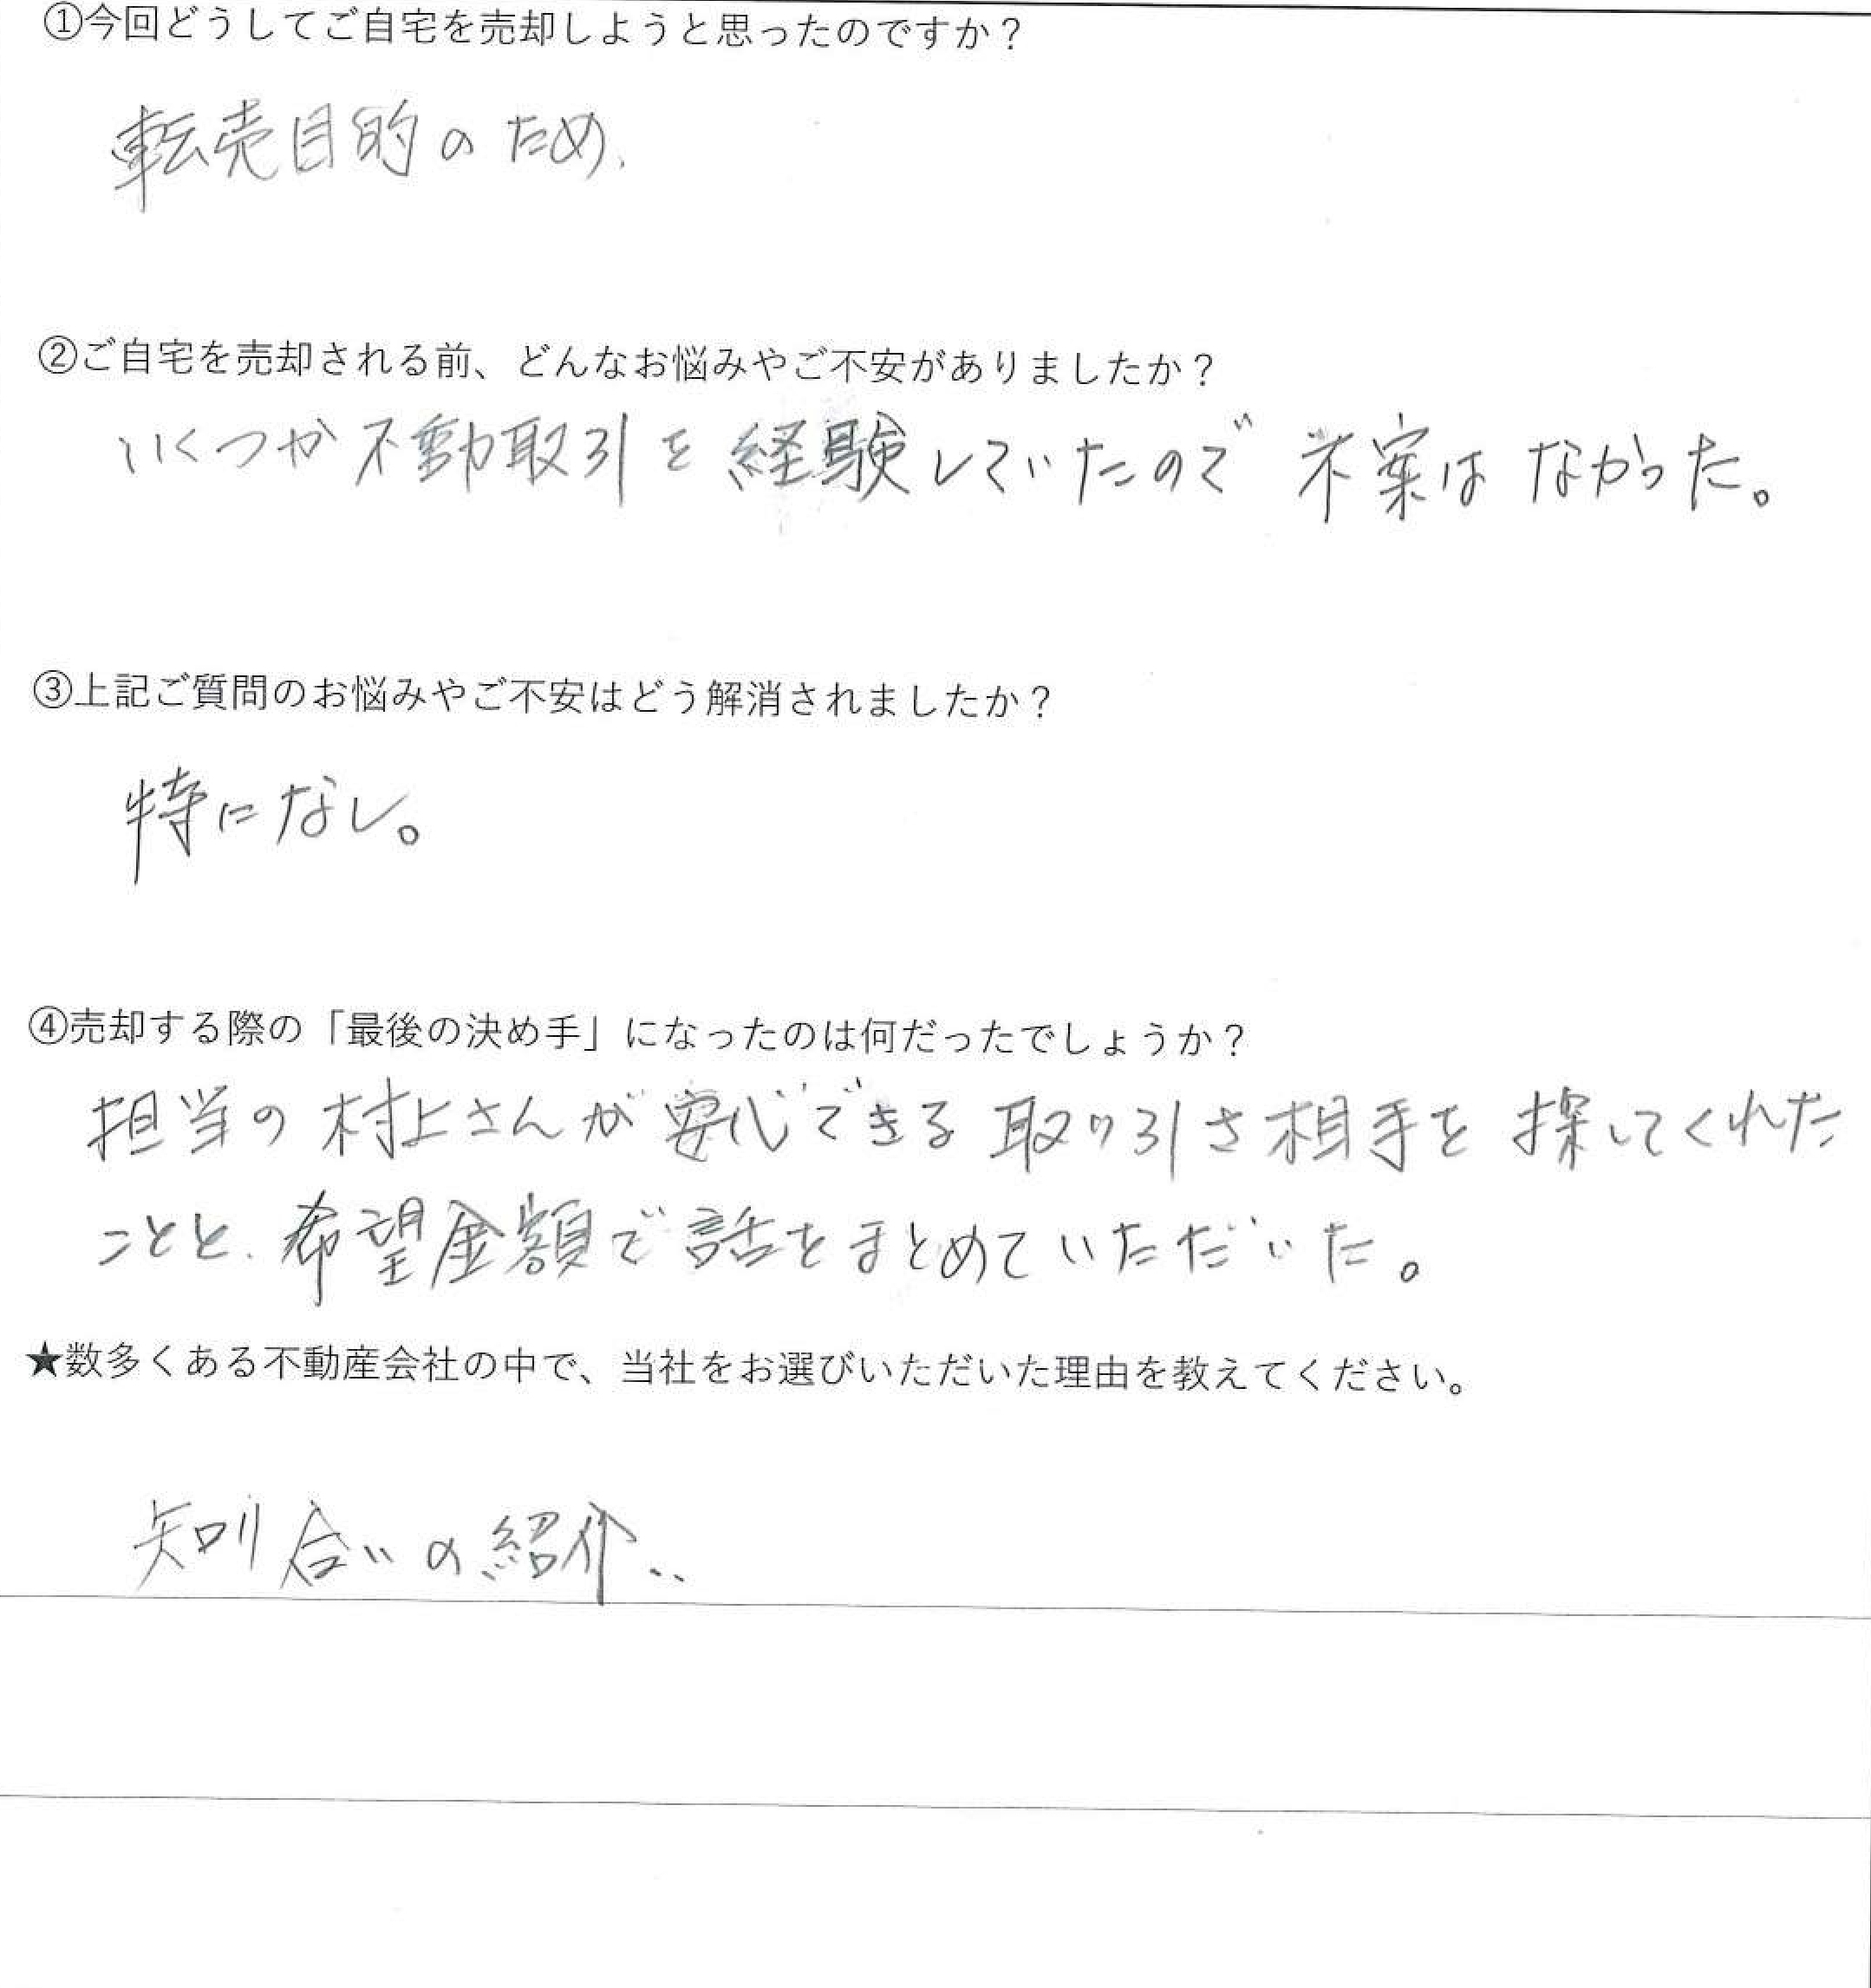 ①今回どうしてご自宅を売却しようと思ったのですか？
転売目的のため.
②ご自宅を売却される前、どんなお悩みやご不安がありましたか？
いくつか不動取引を経験していたので不案はなかった。
③上記ご質問のお悩みやご不安はどう解消されましたか？
特になし。
④売却する際の「最後の決め手」になったのは何だったでしょうか？
担当の村上さんが安心できる取り引き相手を探してくれた
ことと、希望金額で話をまとめていただいた。
★数多くある不動産会社の中で、当社をお選びいただいた理由を教えてください。
知り合いの紹介..